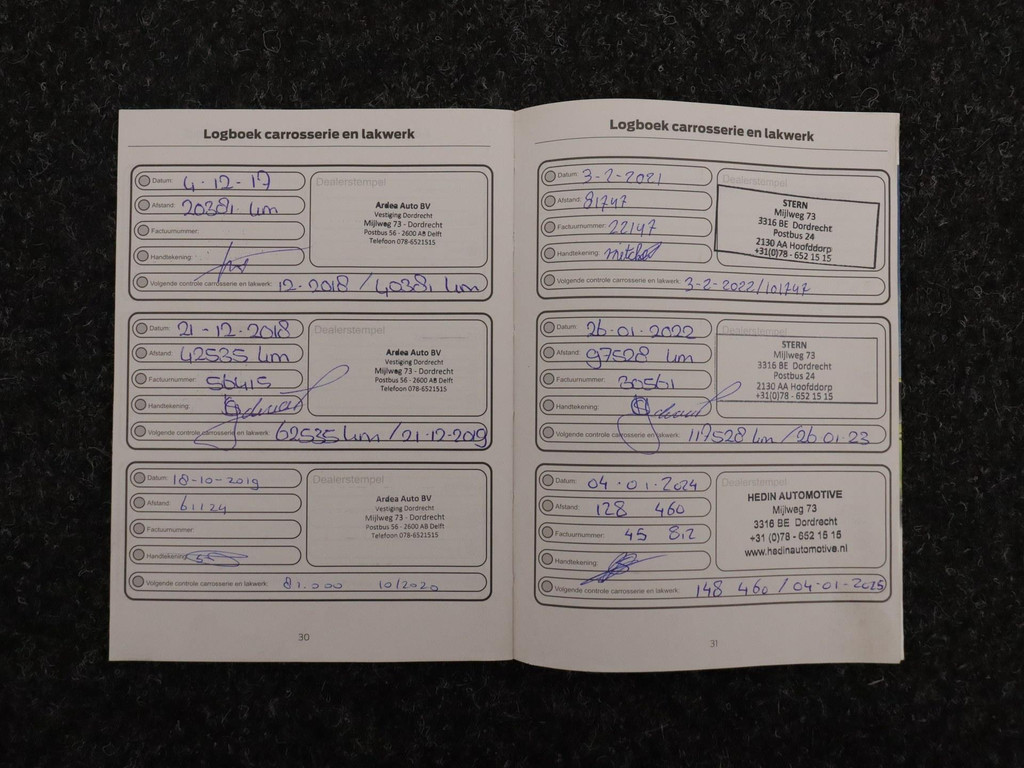 Logboek carrosserie en lakwerk
Datum: 4-12-17
Afstand: 20381 km
Factuurnummer:
Handtekening:
Volgende controle carrosserie en lakwerk: 12-2018 / 40381 km
Dealerstempel
Ardea Auto BV
Vestiging Dordrecht
Mijlweg 73 - Dordrecht
Postbus 56 - 2600 AB Delft
Telefoon 078-6521515
Datum: 21-12-2018
Afstand: 42535 km
Factuurnummer: 56415
Handtekening:
Volgende controle carrosserie en lakwerk: 62535 km / 21-12-2019
Dealerstempel
Ardea Auto BV
Vestiging Dordrecht
Mijlweg 73 - Dordrecht
Postbus 56 - 2600 AB Delft
Telefoon 078-6521515
Datum: 18-10-2019
Afstand: 61124
Factuurnummer:
Handtekening:
Volgende controle carrosserie en lakwerk: 81.000 10/2020
Dealerstempel
Ardea Auto BV
Vestiging Dordrecht
Mijlweg 73 - Dordrecht
Postbus 56 - 2600 AB Delft
Telefoon 078-6521515
30
Logboek carrosserie en lakwerk
Datum: 3-2-2021
Afstand: 81747
Factuurnummer: 22147
Handtekening: mitchel
Volgende controle carrosserie en lakwerk: 3-2-2022/101747
Dealerstempel
STERN
Mijlweg 73
3316 BE Dordrecht
Postbus 24
2130 AA Hoofddorp
+31(0)78 - 652 15 15
Datum: 26-01-2022
Afstand: 97528 km
Factuurnummer: 30561
Handtekening:
Volgende controle carrosserie en lakwerk: 117528 km / 26 01-23
Dealerstempel
STERN
Mijlweg 73
3316 BE Dordrecht
Postbus 24
2130 AA Hoofddorp
+31(0)78 - 652 15 15
Datum: 04-01-2024
Afstand: 128 460
Factuurnummer: 45 812
Handtekening:
Volgende controle carrosserie en lakwerk: 148 460 / 04-01-2025
Dealerstempel
HEDIN AUTOMOTIVE
Mijlweg 73
3316 BE Dordrecht
+31 (0)78 - 652 15 15
www.hedinautomotive.nl
31